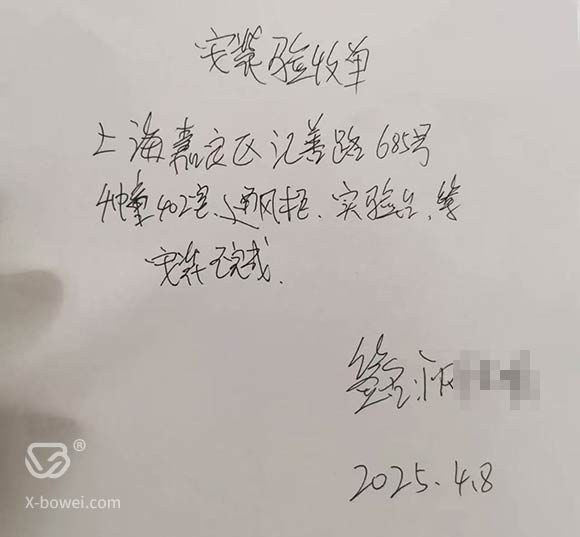 安装验收单
上海嘉定区汇善路685号
4幢402室、通风柜、实验台、等
安装完成.
签字:
2025.4.8
X-bowei.com
®